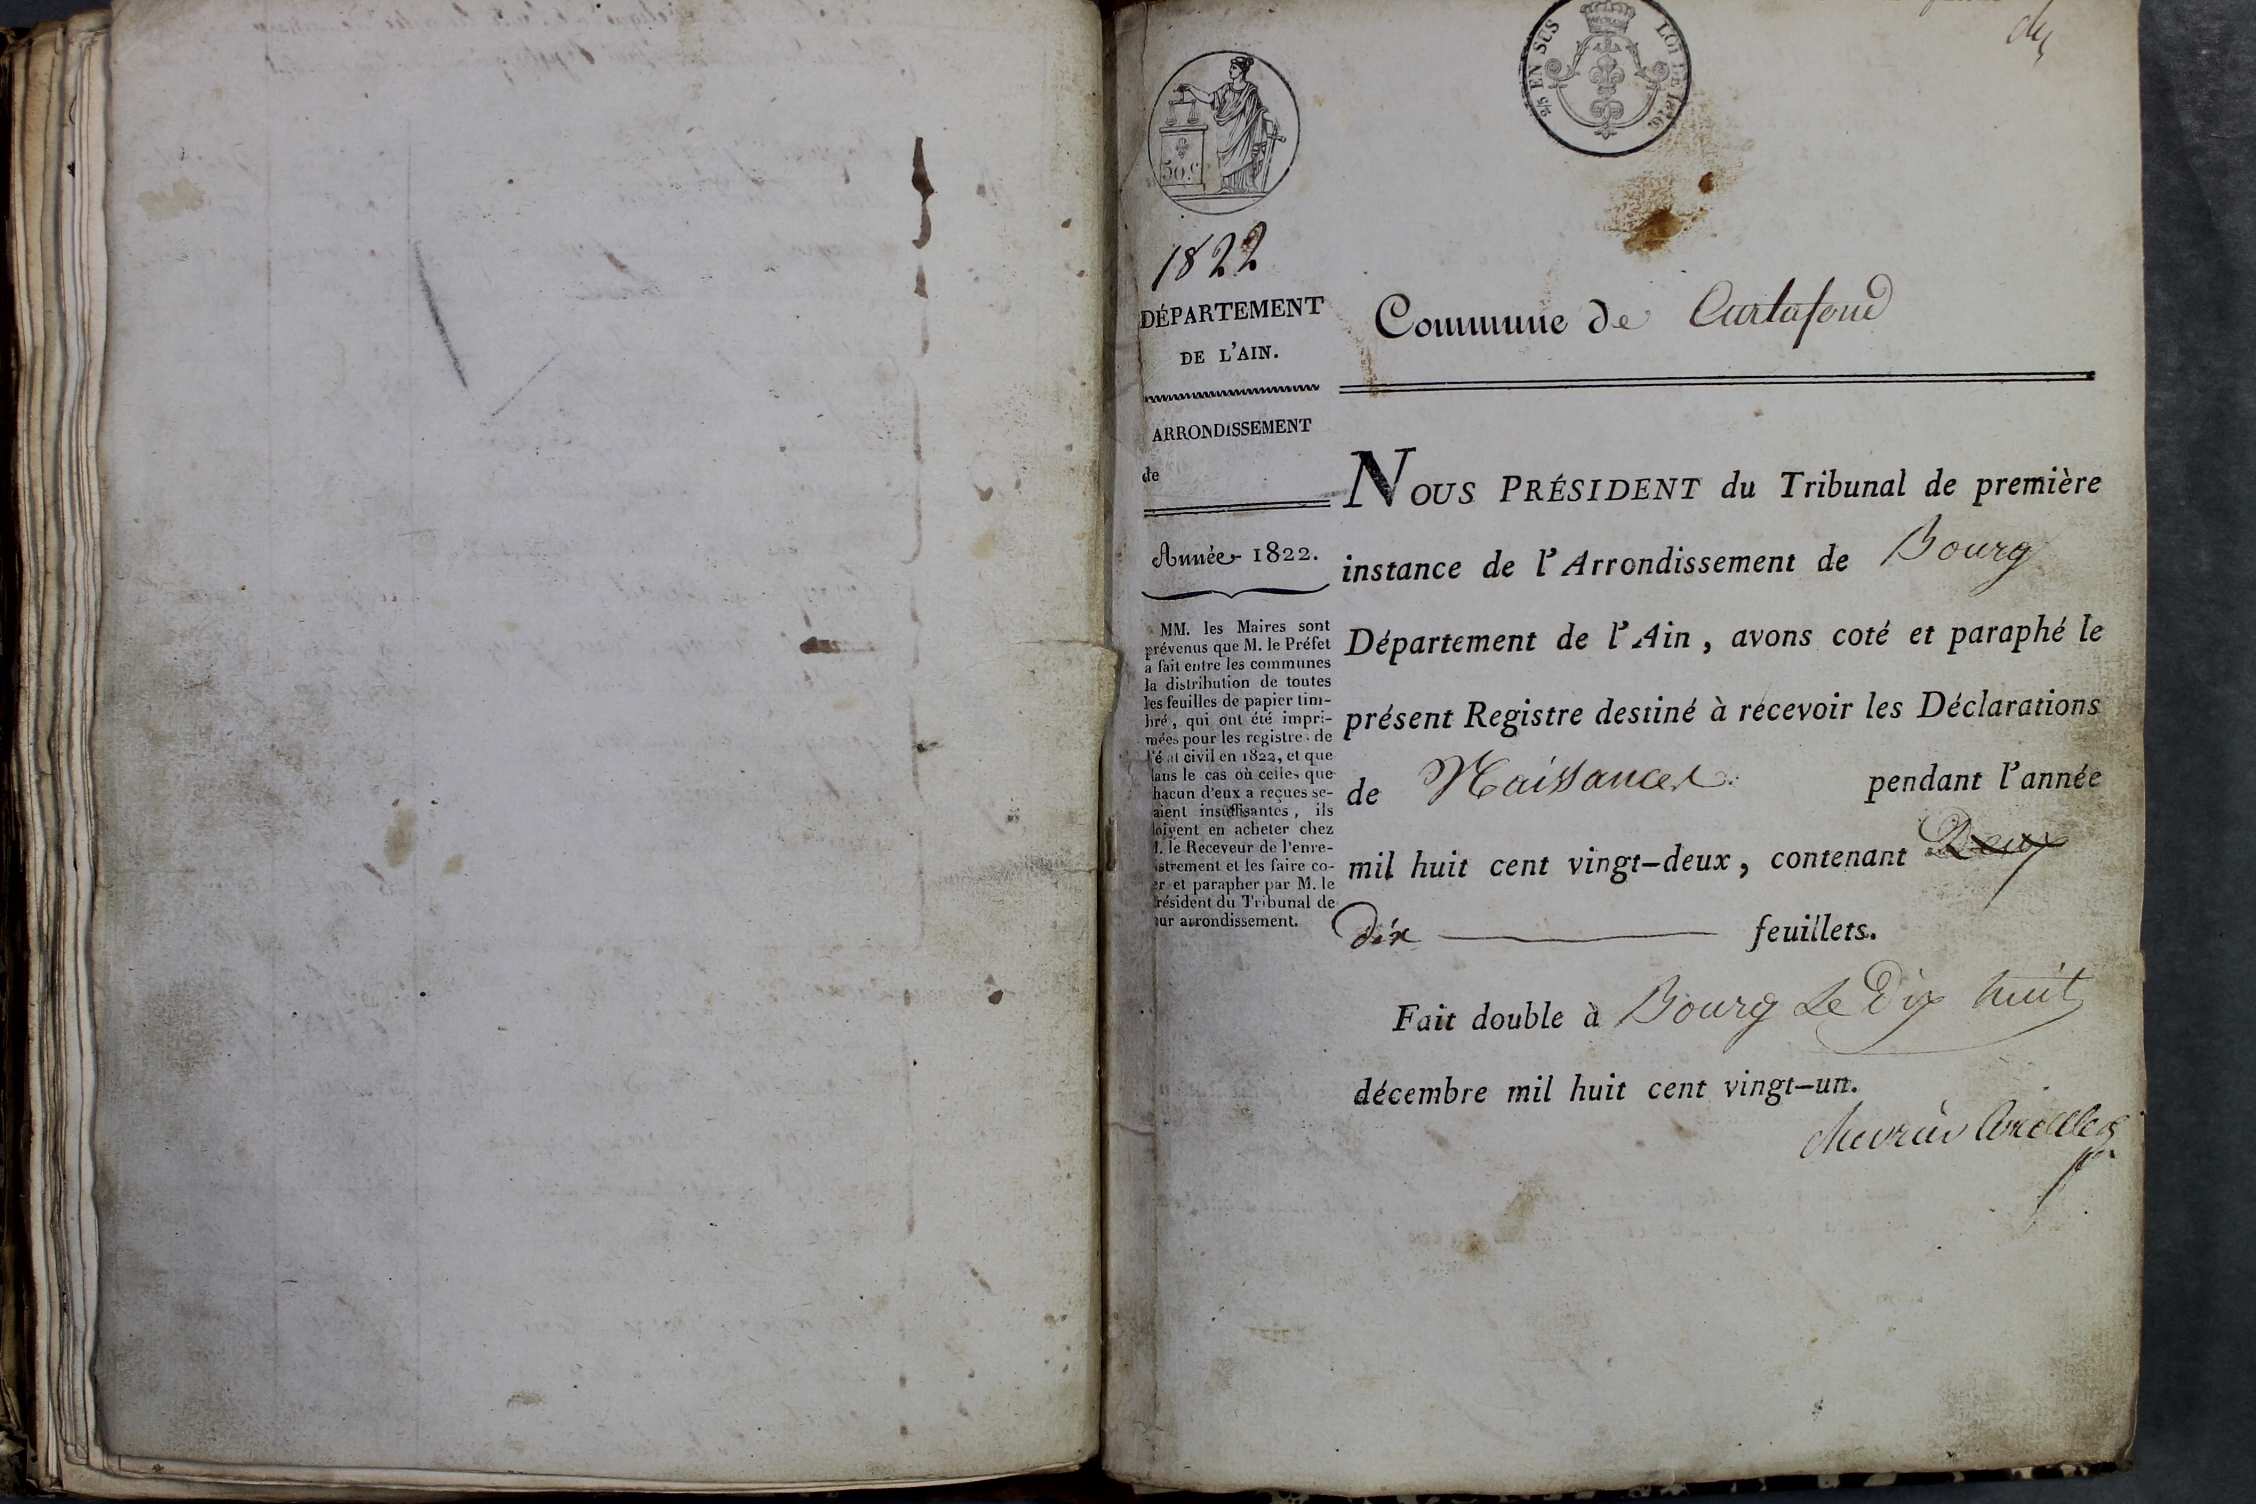 2/5 EN SUS LOI DE 1816.
50 C.
1822
DÉPARTEMENT
DE L'AIN.
ARRONDISSEMENT
de
Année 1822.
MM. les Maires sont
prévenus que M. le Préfet
a fait entre les communes
la distribution de toutes
les feuilles de papier tim-
bré, qui ont été impri-
mées pour les registre de
l'é at civil en 1822, et que
dans le cas où celles que
hacun d'eux a reçues se-
aient insuffisantes, ils
doivent en acheter chez
M. le Receveur de l'enre-
istrement et les faire co-
er et parapher par M. le
résident du Tribunal de
our arrondissement.
Commune de Curtafond
NOUS PRÉSIDENT du Tribunal de première
instance de l'Arrondissement de Bourg
Département de l'Ain, avons coté et paraphé le
présent Registre destiné à recevoir les Déclarations
de Naissances pendant l'année
mil huit cent vingt-deux, contenant Deux
dix feuillets.
Fait double à Bourg Le Dix huit
décembre mil huit cent vingt-un.